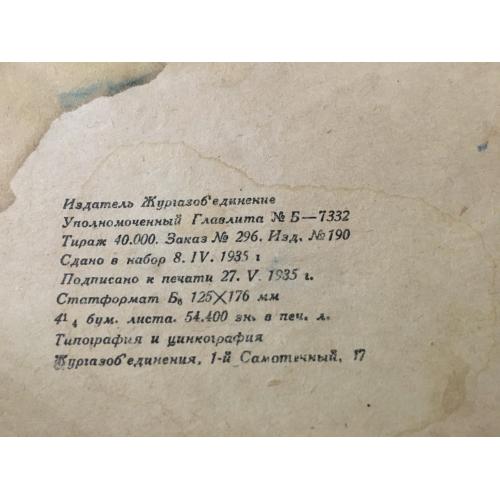 Издатель Жургазоб'единение
Уполномоченный Главлита № Б—7332
Тираж 40.000. Заказ № 296. Изд. № 190
Сдано в набор 8. IV. 1935 г
Подписано к печати 27. V. 1935 г.
Статформат Б₆ 125×176 мм
4¹ ₄ бум. листа. 54.400 зн. в печ. л.
Типография и цинкография
Жургазоб'единения, 1-й Самотечный, 17